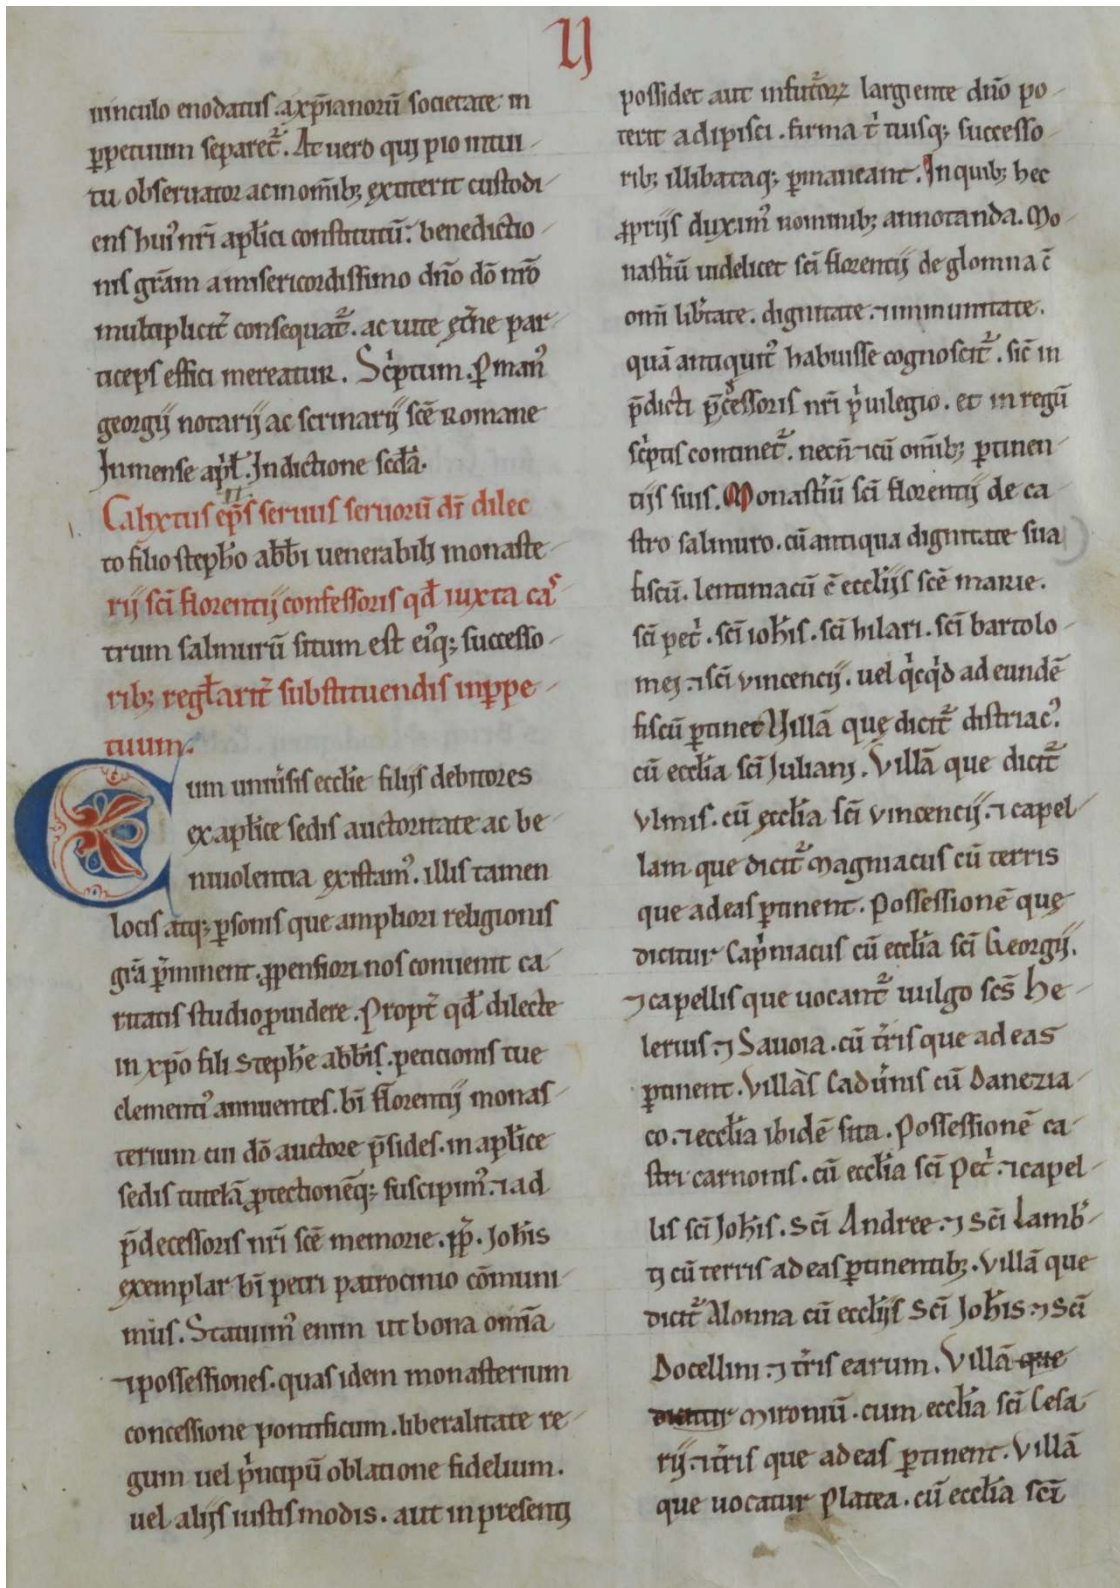 IJ
uinculo enodatus . a xp̄ianorū societate in
ꝑpetuum separet᷑. At uero qui pio intui-
tu obseruator ac in om̄ibꝫ extiterit custodi-
ens huiꝰ nr̄i apl̄ici constitutū . benedictio-
nis grām a misericordissimo dn̄o dō nr̄o
multiplicit̄ consequat᷑. ac uite et̄ne par-
ticeps effici mereatur. Sc̓ptum . ꝑ manꝰ
georgij notarij ac scrinarij sc̄e Romane
In mense ap̓l̄. Indictione scd̄a.
Calixtus ep̄s seruus seruorū dī dilec
to filio stepħo abb̄i uenerabilis monaste-
rij sc̄i florentij confessoris qd̄ iuxta cas-
trum salmurū situm est eiꝰqꝫ successo-
ribꝫ regl̄arit̄ substituendis inꝑpe-
tuum.
Cum uniu̓sis eccl̄ie filijs debitores
ex apl̄ice sedis auctoritate ac be
niuolentia existamꝰ. illis tamen
locis atqꝫ ꝑsonis que ampliori religionis
grā p̄iminent . ꝓpensiori nos conuenit ca-
ritatis studio ꝓuidere . Propt̄ qd̄ dilecte
in xp̄o fili Stepħe abb̄is . peticionis tue
clementiꝰ annuentes . bī florentij monas-
terium cui dō auctore p̄sides . in apl̄ice
sedis tutelā ꝓtectionēqꝫ suscipimꝰ. ⁊ ad
p̄decessoris nr̄i sc̄e memorie . pp̄. Joħis
exemplar bī petri patrocinio cōmuni-
mus. Statuimꝰ enim ut bona om̄ia
⁊ possessiones . quas idem monasterium
concessione pontificum . liberalitate re-
gum uel p̓ncipū oblatione fidelium.
uel alijs iustis modis . aut in presenti
possidet aut in futuꝝ largiente dn̄o po-
terit adipisci . firma t̓ tuisqꝫ successo-
ribꝫ illibataqꝫ ꝑmaneant . In quibꝫ hec
ꝓprijs duximꝰ nominibꝫ annotanda. Mo-
nast̓iū uidelicet sc̄i florentij de glomna c̄
om̄i lib̓tate . dignitate . ⁊ inmunitate.
quā antiquitꝰ habuisse cognoscit᷑. sic̄ in
p̄dicti p̄decessoris nr̄i p̓uilegio . et in regū
sc̓ptis continet᷑. necn̄ ⁊ cū om̄ibꝫ ꝑtinen-
tijs suis. Monast̓iū sc̄i florentij de ca-
stro salmuro . cū antiqua dignitate sua
fiscū . lentiniacū c̄ eccl̄ijs sc̄e marie .
sc̄i pet̓. sc̄i ioħis . sc̄i hilari . sc̄i bartolo-
mej . ⁊ sc̄i vincencij . uel q̓cq̓d ad eundē
fiscū ꝑtinet Villā quę dicit᷑ distriacꝰ.
cū eccl̄ia sc̄i Juliani . Villā que dicit᷑
vlmis . cū ęccl̄ia sc̄i vincencij . ⁊ capel-
lam que dicit᷑ magniacus cū terris
que ad eas ꝑtinent . Possessionē quę
dicitur Cap̓niacus cū eccl̄ia sc̄i Georgij.
⁊ capellis que uocant᷑ uulgo sc̄s he-
lerius . ⁊ Sauoia . cū t̓ris que ad eas
ꝑtinent . Villas Cadu̓nis cū Danezia-
co . ⁊ eccl̄ia ibidē sita . Possessionē ca-
stri carnonis . cū eccl̄ia sc̄i Pet̓. ⁊ capel-
lis sc̄i Joħis . sc̄i Andree . ⁊ sc̄i lamb̓-
tj cū terris ad eas ꝑtinentibꝫ . Villā que
dicit᷑ Alonna cū eccl̄ijs sc̄i Joħis . ⁊ sc̄i
Docellini . ⁊ t̓ris earum . Villā que
dicitur mironiū . cum eccl̄ia sc̄i Cesa-
rij . ⁊ t̓ris que ad eas ꝑtinent . Villā
que uocatur Platea . cū eccl̄ia sc̄i